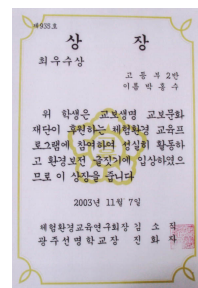 제935호
상 장
최우수상
고등부2반
이름 박홍수
위 학생은 교보생명 교보문화
재단이 후원하는 체험환경 교육프
로그램에 참여하여 성실히 활동하
고 환경보전 슬짓기에 입상하였으
므로 이 상장을 줍니다
2003년 11월 7일
체험환경교육연구회장 김 소 직
광주선명학교장 진 화 자